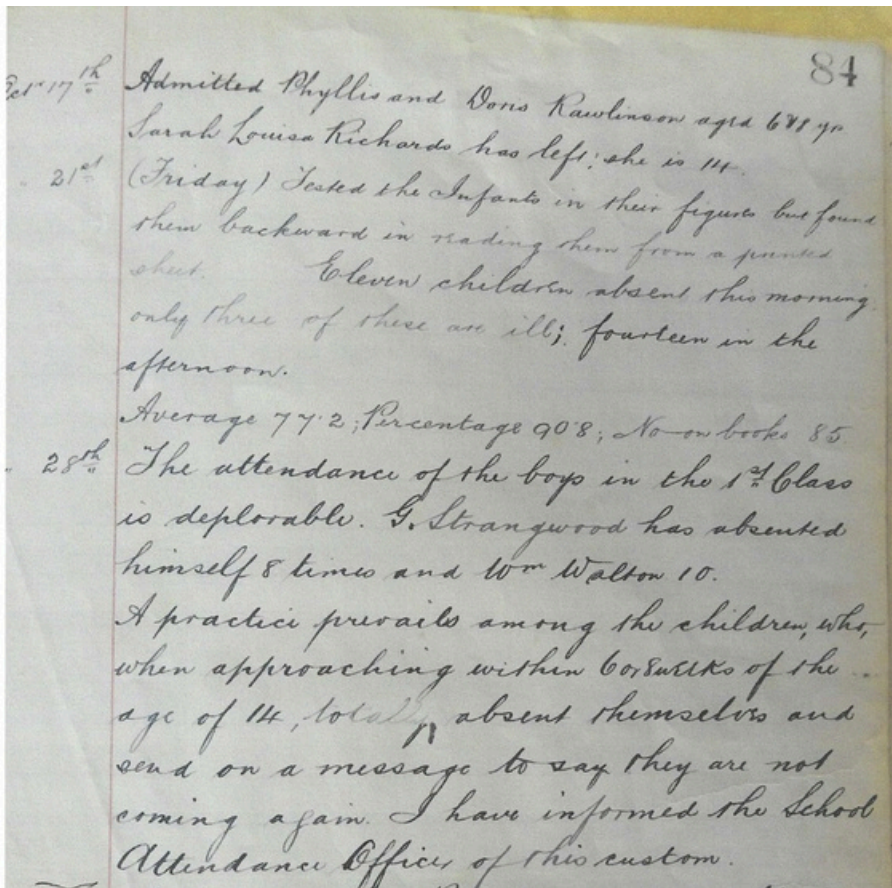 84
Oct 17th Admitted Phyllis and Doris Rawlinson aged 6 & 8 yrs
Sarah Louisa Richards has left; she is 14.
" 21st (Friday) Tested the Infants in their figures but found
them backward in reading them from a printed
sheet. Eleven children absent this morning
only three of these are ill; fourteen in the
afternoon.
Average 77.2; Percentage 90.8; No on books 85
" 28th The attendance of the boys in the 1st Class
is deplorable. G. Strangwood has absented
himself 8 times and Wm Walton 10.
A practice prevails among the children, who,
when approaching within 6 or 8 weeks of the
age of 14, totally absent themselves and
send on a message to say they are not
coming again. I have informed the School
Attendance Officer of this custom.